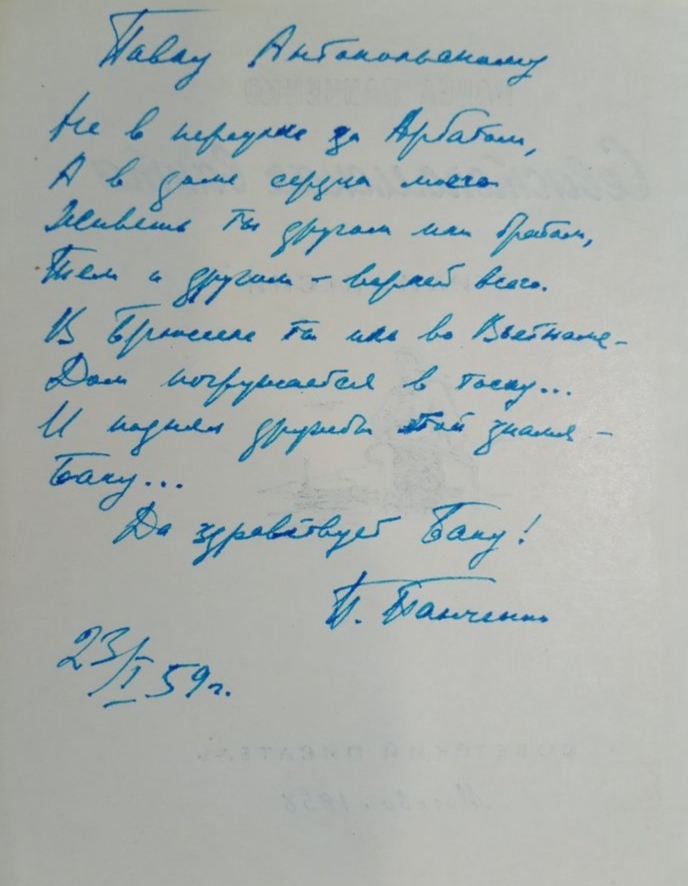 Павлу Антокольскому
Не в переулке за Арбатом,
А в доме сердца моего
Живёшь ты другом или братом,
Тем и другим – верней всего.
В Брюсселе ты иль во Вьетнаме –
Дом погружается в тоску...
И поднял дружбы той знамя –
Баку...
Да здравствует Баку!
П. Панченко
23/I 59 г.
СОВЕТСКИЙ ПИСАТЕЛЬ
Москва 1958